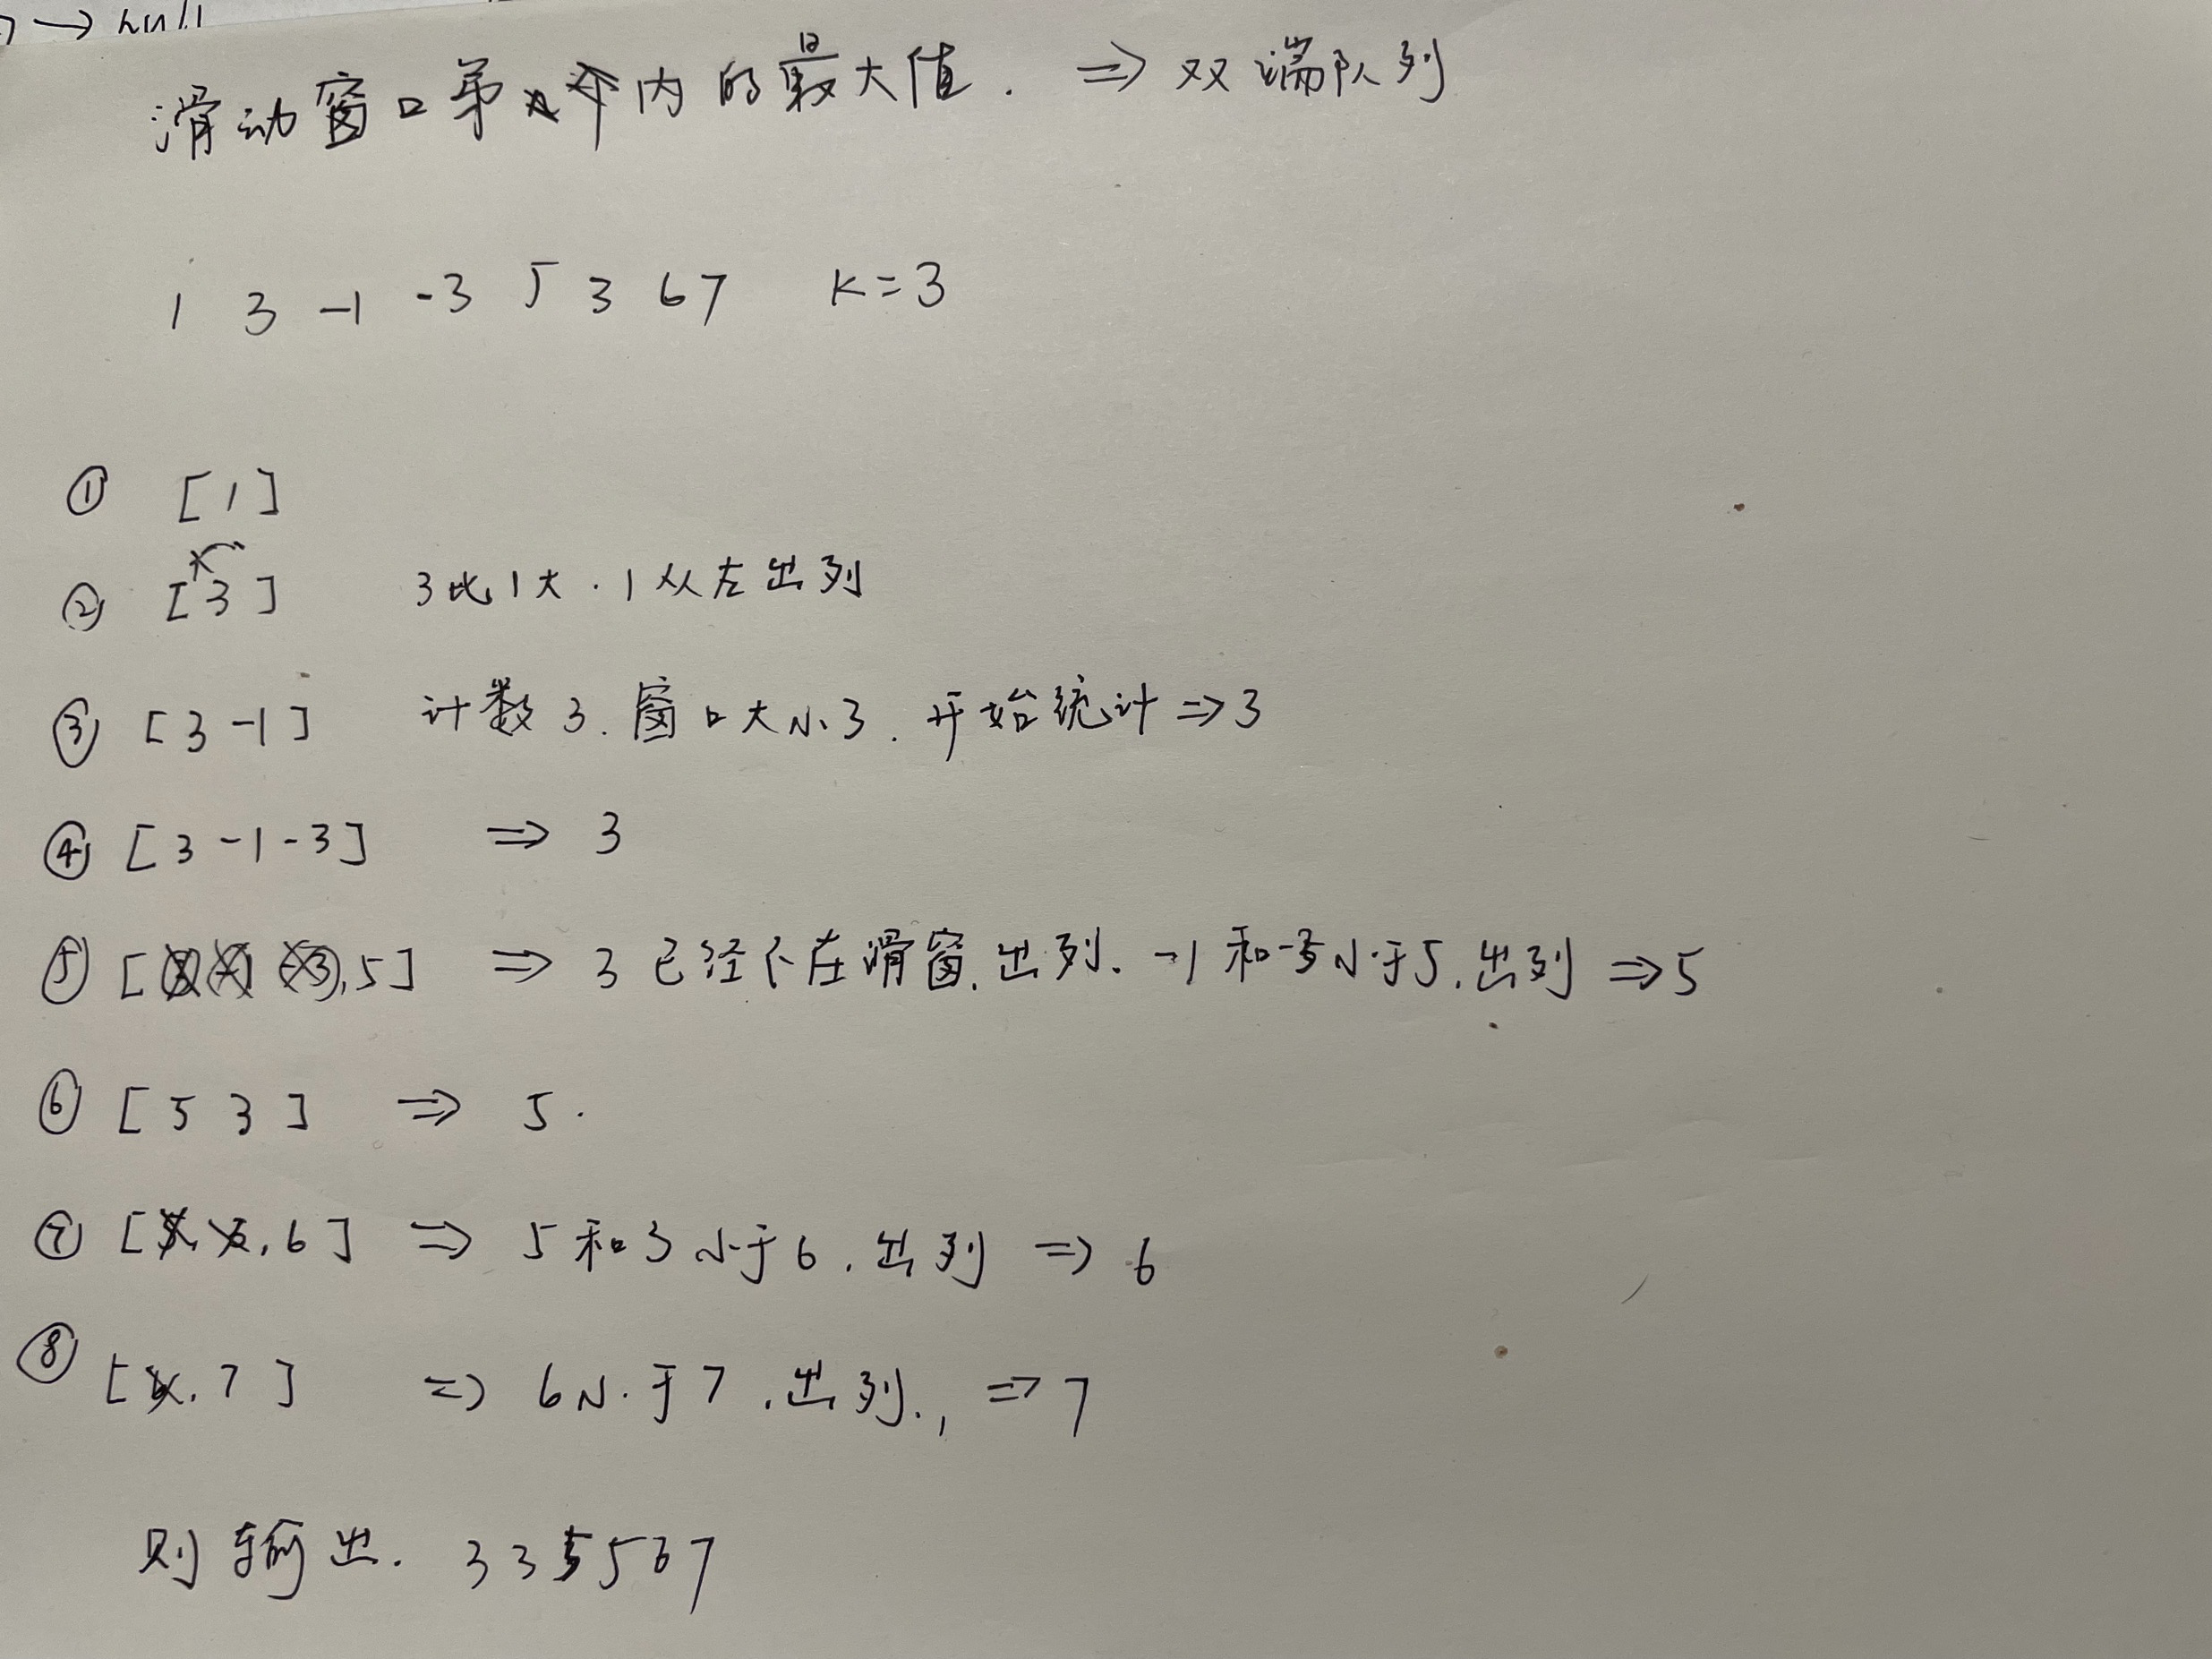 → null
滑动窗口内的最大值. ⇒ 双端队列
1 3 -1 -3 5 3 6 7 K=3
① [1]
② [3] 3比1大.1从左出列
③ [3 -1] 计数3.窗口大小3.开始统计⇒3
④ [3 -1 -3] ⇒ 3
⑤ [3 -1 -3,5] ⇒ 3已经不在滑窗.出列.-1和-3小于5.出列⇒5
⑥ [5 3] ⇒ 5.
⑦ [5,3,6] ⇒ 5和3小于6.出列⇒6
⑧ [6,7] ⇒ 6小于7.出列.,⇒7
则输出. 3 3 5 5 6 7